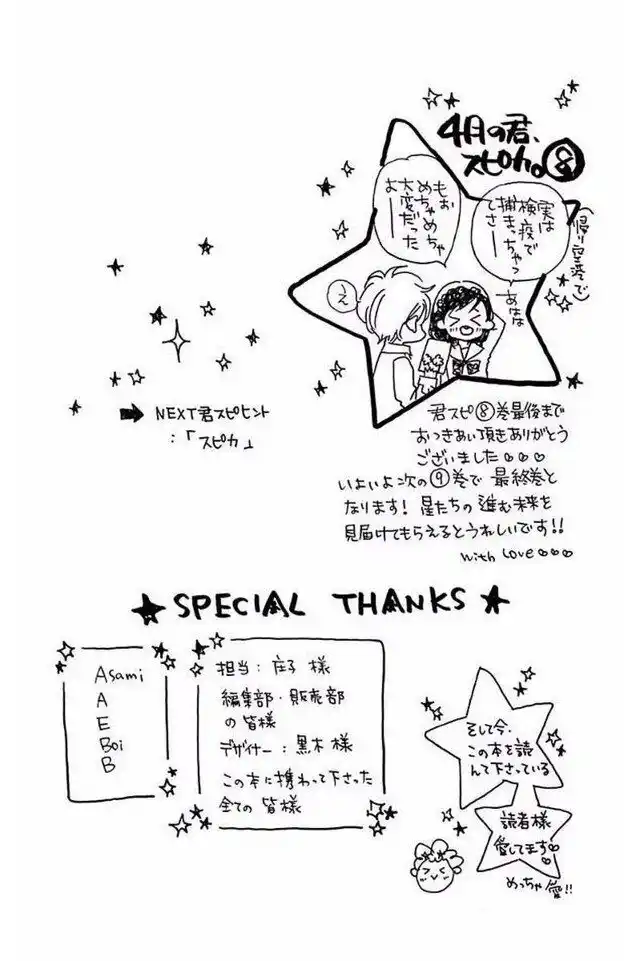 4月の君、
スピカ。⑧
(帰り空港で)
実は
検疫で
捕まっちゃっ
てさー
あはは
もお
めちゃめちゃ
大変だった
よー
え
君スピ⑧巻最後まで
おつきあい頂きありがとう
ございました♡♡♡
いよいよ次の⑨巻で 最終巻と
なります! 星たちの進む未来を
見届けてもらえるとうれしいです!!
with Love♡♡♡
➡ NEXT君スピヒント
:「スピカ」
★ SPECIAL THANKS ★
Asami
A
E
Boi
B
担当:庄子 様
編集部・販売部
の皆様
デザイナー:黒木様
この本に携わって下さった
全ての皆様
そして今、
この本を読
んで下さっている
読者様
愛してます♡
めっちゃ愛!!